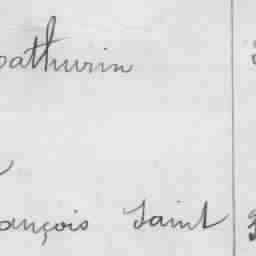 athurin
ançois Saint